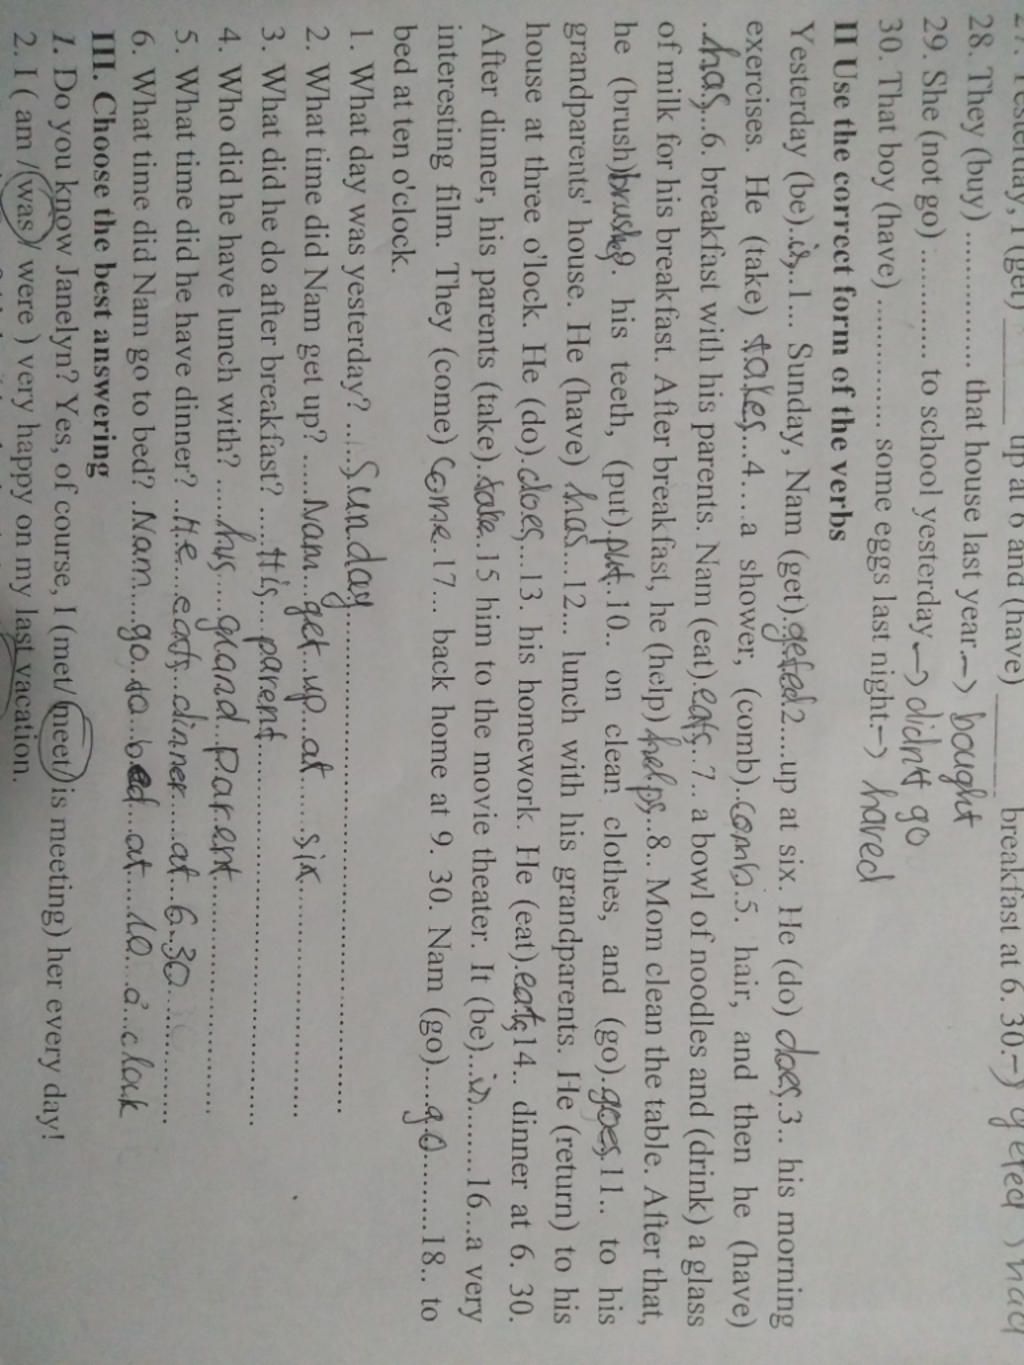 up at 6 and (have) ________ breakfast at 6. 30.
28. They (buy) .............. that house last year.→ bought
29. She (not go) ............ to school yesterday→ didn't go
30. That boy (have) ............. some eggs last night→ haved
II Use the correct form of the verbs
Yesterday (be)..is..1... Sunday, Nam (get).geted2....up at six. He (do) does.3.. his morning
exercises. He (take) takes...4....a shower, (comb)..comb.5. hair, and then he (have)
.has...6. breakfast with his parents. Nam (eat).eats..7.. a bowl of noodles and (drink) a glass
of milk for his breakfast. After breakfast, he (help) helps..8.. Mom clean the table. After that,
he (brush) 9. his teeth, (put).put.10.. on clean clothes, and (go).goes11.. to his
grandparents' house. He (have) has...12... lunch with his grandparents. He (return) to his
house at three o'lock. He (do).does...13. his homework. He (eat).eats14.. dinner at 6. 30.
After dinner, his parents (take).take..15 him to the movie theater. It (be)...is........16...a very
interesting film. They (come) come.17... back home at 9. 30. Nam (go)....go.........18.. to
bed at ten o'clock.
1. What day was yesterday? .....Sunday..............................
2. What time did Nam get up? .....Nam...get...up...at.....six..................
3. What did he do after breakfast? .....His...parent..............................
4. Who did he have lunch with? .....his....grand..parent......................
5. What time did he have dinner? ..He....eats..dinner....at..6.30.............
6. What time did Nam go to bed? .Nam....go..to..bed...at....10...o'..clouk
III. Choose the best answering
1. Do you know Janelyn? Yes, of course, I (met/ meet/ is meeting) her every day!
2. I ( am / was / were ) very happy on my last vacation.